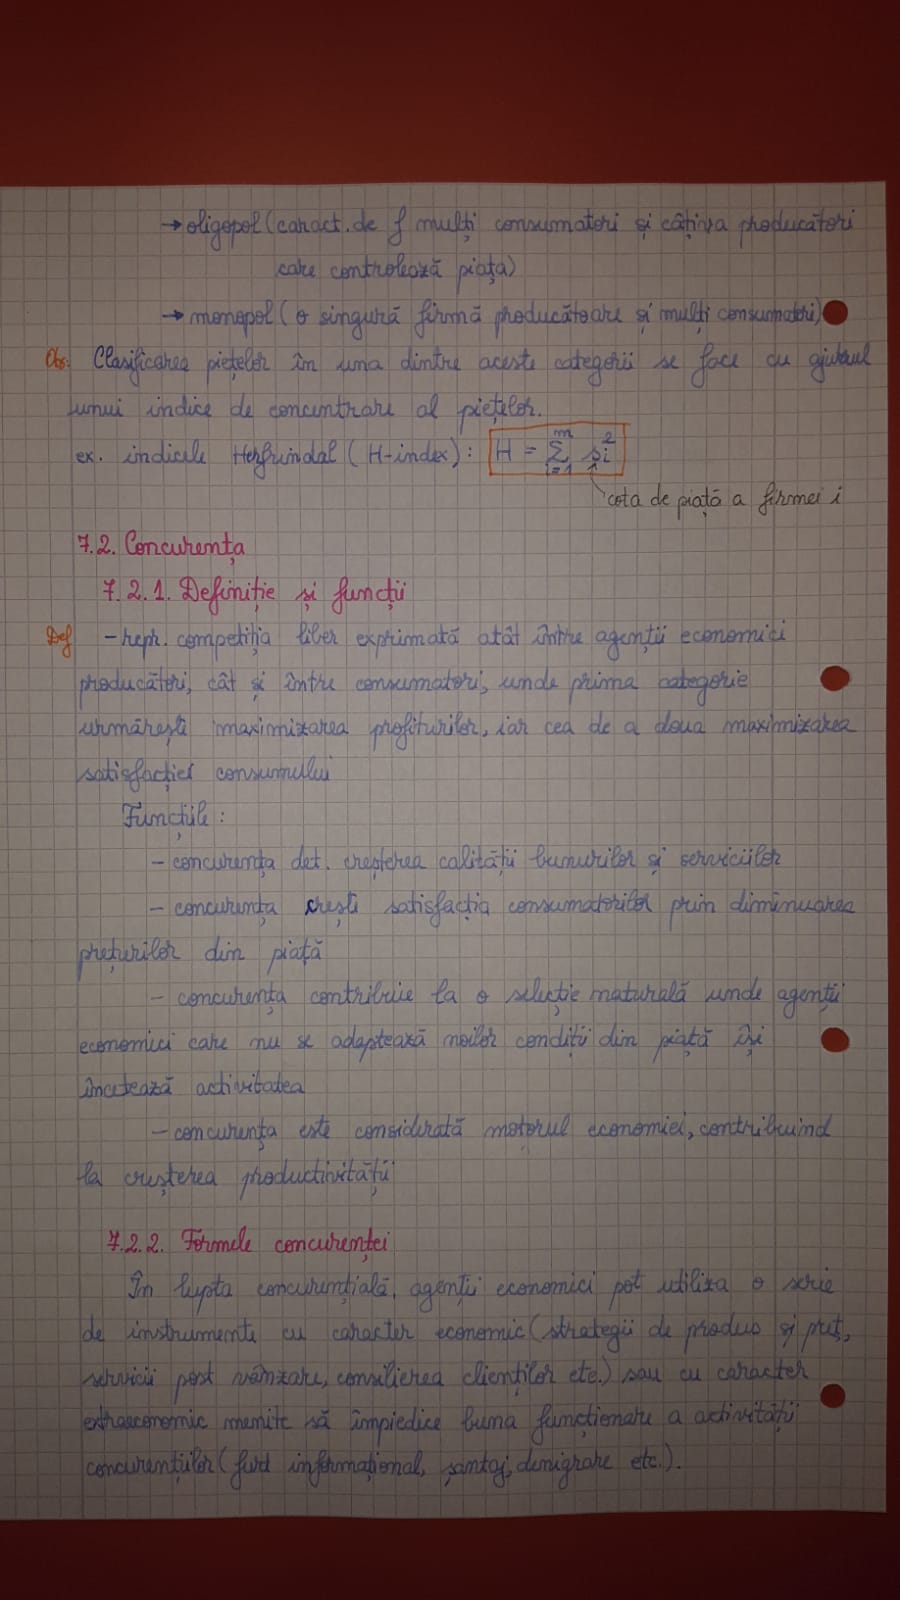 → oligopol (caract. de f mulți consumatori și câțiva producători
care controlează piața)
→ monopol (o singură firmă producătoare și mulți consumatori)
Obs: Clasificarea piețelor în una dintre aceste categorii se face cu ajutorul
unui indice de concentrare al piețelor.
ex. indicele Herfindal (H-index): H = Σ si²
m
i=1
cota de piață a firmei i
7.2. Concurența
7.2.1. Definiție și funcții
Def - repr. competiția liber exprimată atât între agenții economici
producători, cât și între consumatori, unde prima categorie
urmărești maximizarea profiturilor, iar cea de a doua maximizarea
satisfacției consumului
Funcțiile:
- concurența det. creșterea calității bunurilor și serviciilor
- concurența crești satisfacția consumatorilor prin diminuarea
prețurilor din piață
- concurența contribuie la o selecție naturală unde agenții
economici care nu se adaptează noilor condiții din piață își
încetează activitatea
- concurența este considerată motorul economiei, contribuind
la creșterea productivității
7.2.2. Formele concurenței
În lupta concurențială, agenții economici pot utiliza o serie
de instrumente cu caracter economic (strategii de produs și preț,
servicii post vânzare, consilierea clienților etc.) sau cu caracter
extraeconomic menite să împiedice buna funcționare a activității
concurenților (furt informațional, șantaj, denigrare etc.).